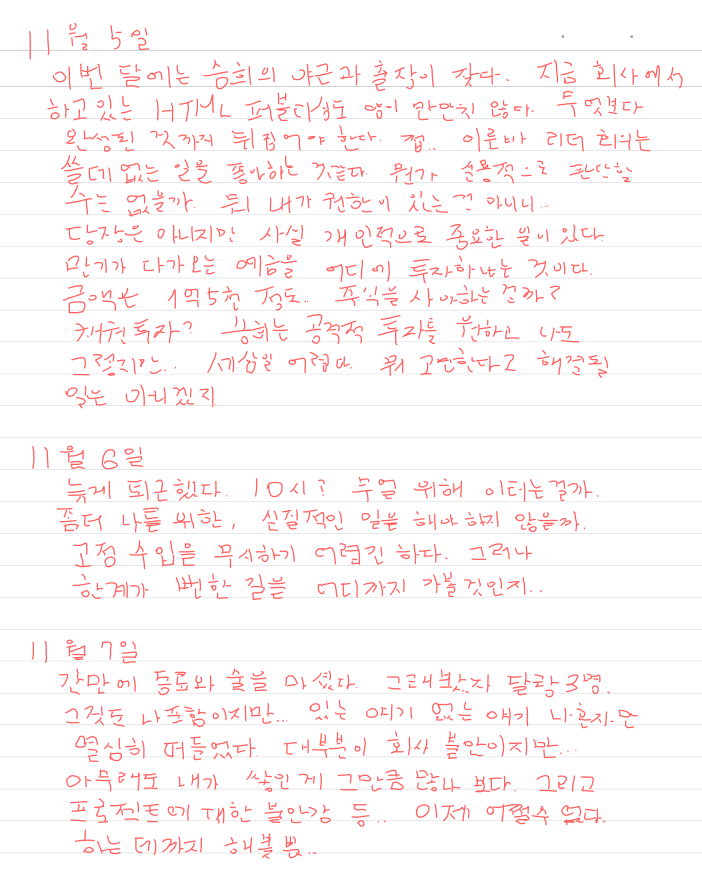 11월 5일
이번 달에는 승희의 야근과 출장이 잦다. 지금 회사에서
하고 있는 HTML 퍼블리싱도 양이 만만치 않다. 무엇보다
완성된 것까지 뒤집어야 한다. 쩝.. 이른바 리더 회의는
쓸데없는 일을 좋아하는 것같다. 뭔가 실용적으로 판단할
수는 없을까. 뭐 내가 권한이 있는 건 아니니...
당장은 아니지만 사실 개인적으로 중요한 일이 있다.
만기가 다가오는 예금을 어디에 투자하냐는 것이다.
금액은 1억5천 정도. 주식을 사야하는 걸까?
채권투자? 승희는 공격적 투자를 원하고 나도
그렇지만.. 세상일 어렵다. 뭐 고민한다고 해결될
일는 아니겠지
11월 6일
늦게 퇴근했다. 10시? 무얼 위해 이러는걸까.
좀더 나를 위한, 실질적인 일을 해야 하지 않을까.
고정 수입을 무시하기 어렵긴 하다. 그러나
한계가 뻔한 길을 어디까지 가볼것인지..
11월 7일
간만에 동료와 술을 마셨다. 그래봤자 달랑 3명.
그것도 나포함이지만... 있는 얘기 없는 얘기 나혼자만
열심히 떠들었다. 대부분이 회사 불안이지만...
아무래도 내가 쌓인게 그만큼 많나 보다. 그리고
프로젝트에 대한 불안감 등.. 이제 어쩔수 없다.
하는 데까지 해볼 뿐..